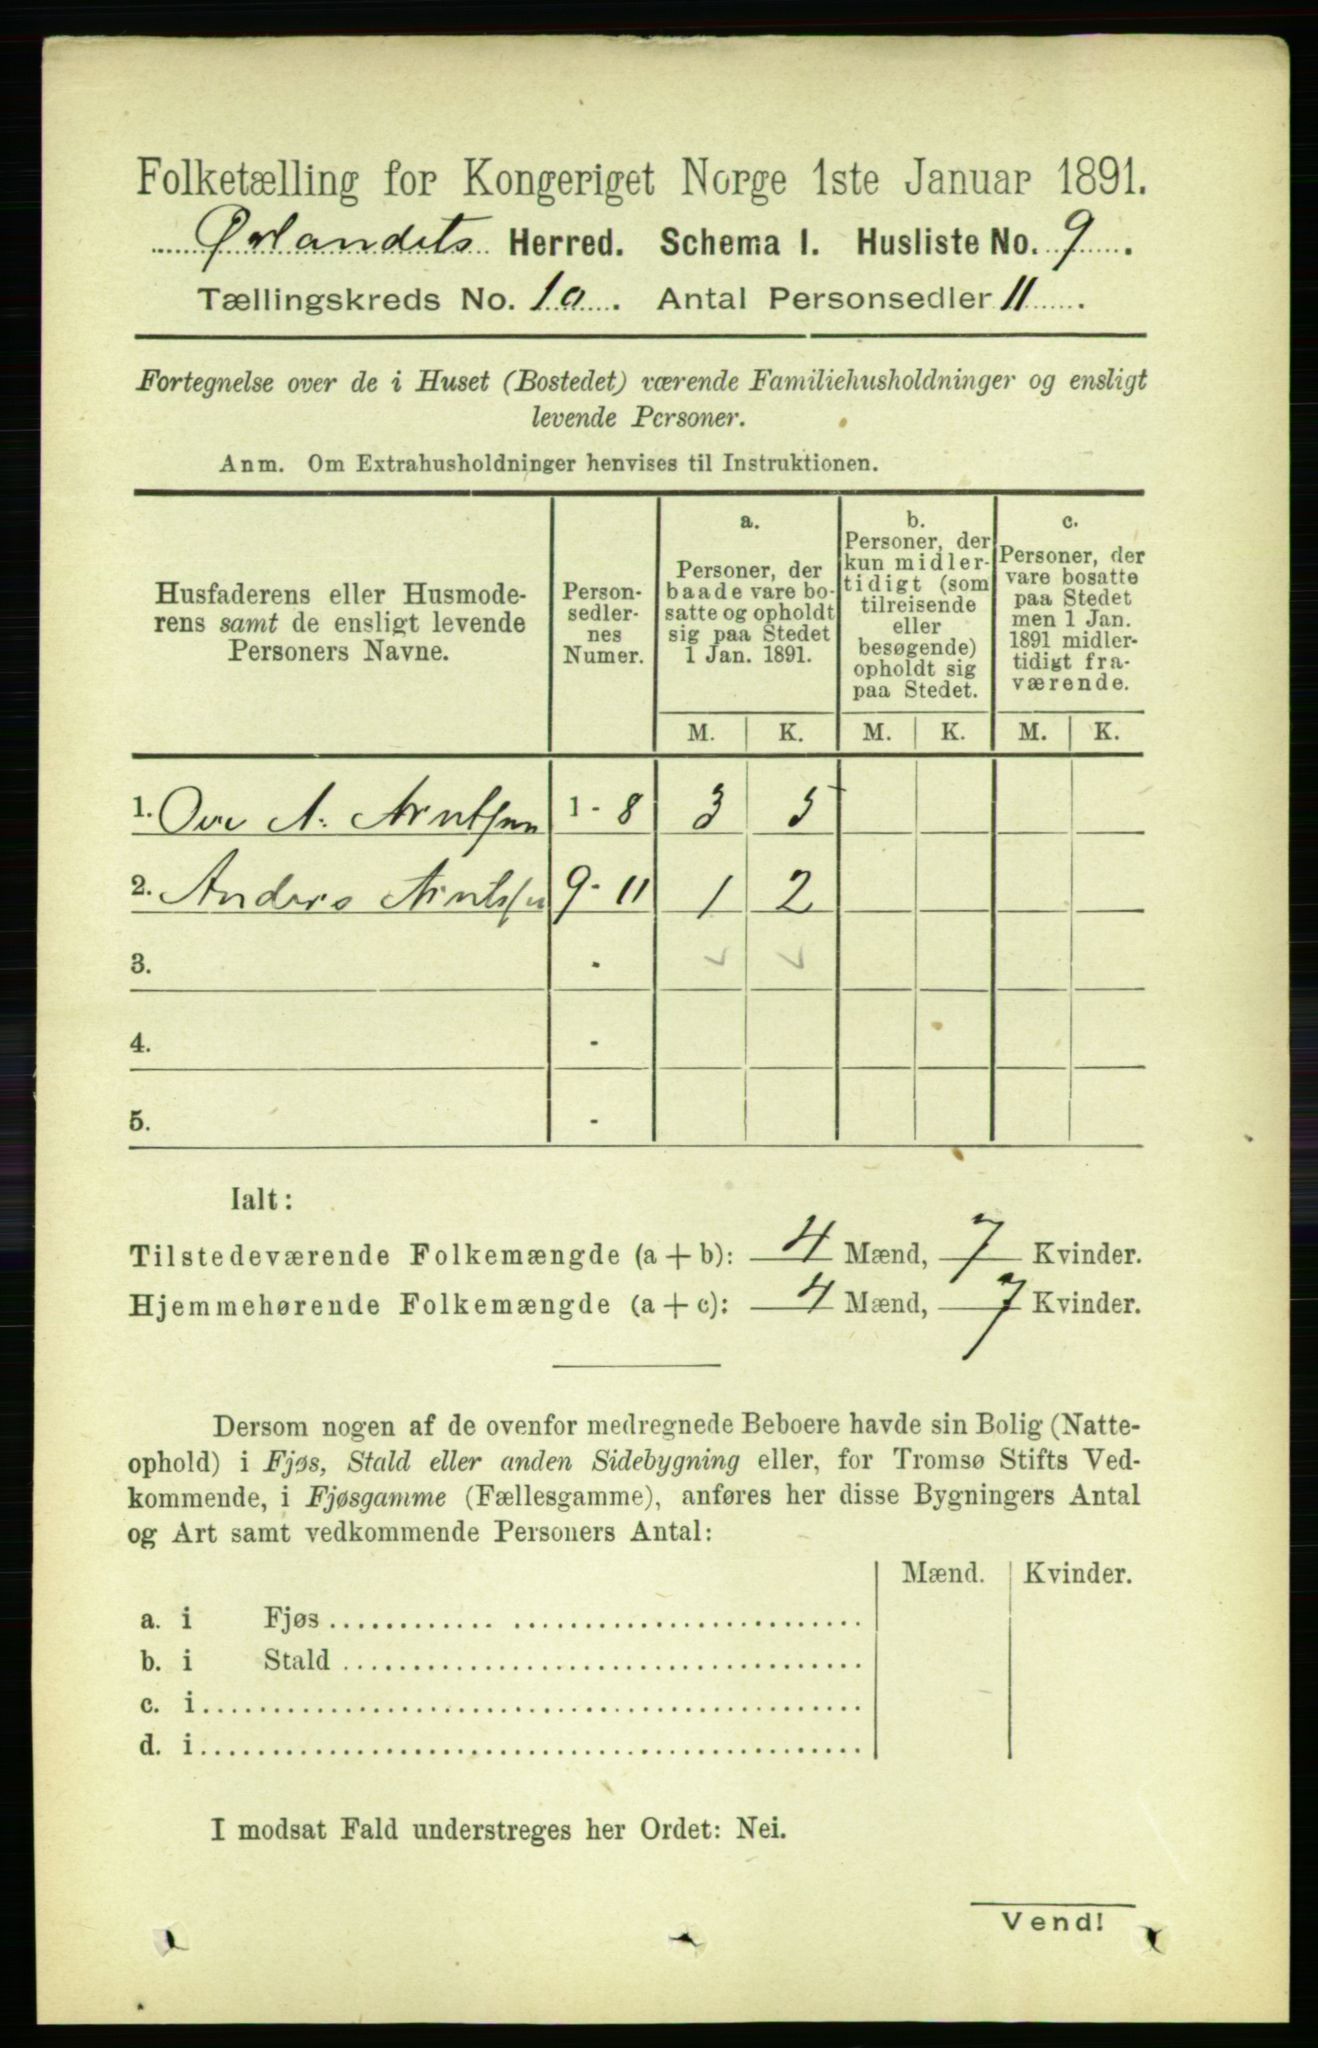 Folketælling for Kongeriget Norge 1ste Januar 1891.
Ørlandets Herred. Schema I. Husliste No. 9.
Tællingskreds No. 1a. Antal Personsedler 11.
Fortegnelse over de i Huset (Bostedet) værende Familiehusholdninger og ensligt
levende Personer.
Anm. Om Extrahusholdninger henvises til Instruktionen.
Husfaderens eller Husmode-
rens samt de ensligt levende
Personers Navne.
Person-
sedler-
nes
Numer.
a.
Personer, der
baade vare bo-
satte og opholdt
sig paa Stedet
1 Jan. 1891.
b.
Personer, der
kun midler-
tidigt (som
tilreisende
eller
besøgende)
opholdt sig
paa Stedet.
c.
Personer, der
vare bosatte
paa Stedet
men 1 Jan.
1891 midler-
tidigt fra-
værende.
M. K. M. K. M. K.
1. Ove A. Arntsen 1 - 8 3 5
2. Anders Arntsen 9 - 11 1 2
3. -
4. -
5. -
Ialt:
Tilstedeværende Folkemængde (a + b): 4 Mænd, 7 Kvinder.
Hjemmehørende Folkemængde (a + c): 4 Mænd, 7 Kvinder.
Dersom nogen af de ovenfor medregnede Beboere havde sin Bolig (Natte-
ophold) i Fjøs, Stald eller anden Sidebygning eller, for Tromsø Stifts Ved-
kommende, i Fjøsgamme (Fællesgamme), anføres her disse Bygningers Antal
og Art samt vedkommende Personers Antal:
Mænd. Kvinder.
a. i Fjøs
b. i Stald
c. i
d. i
I modsat Fald understreges her Ordet: Nei.
Vend!